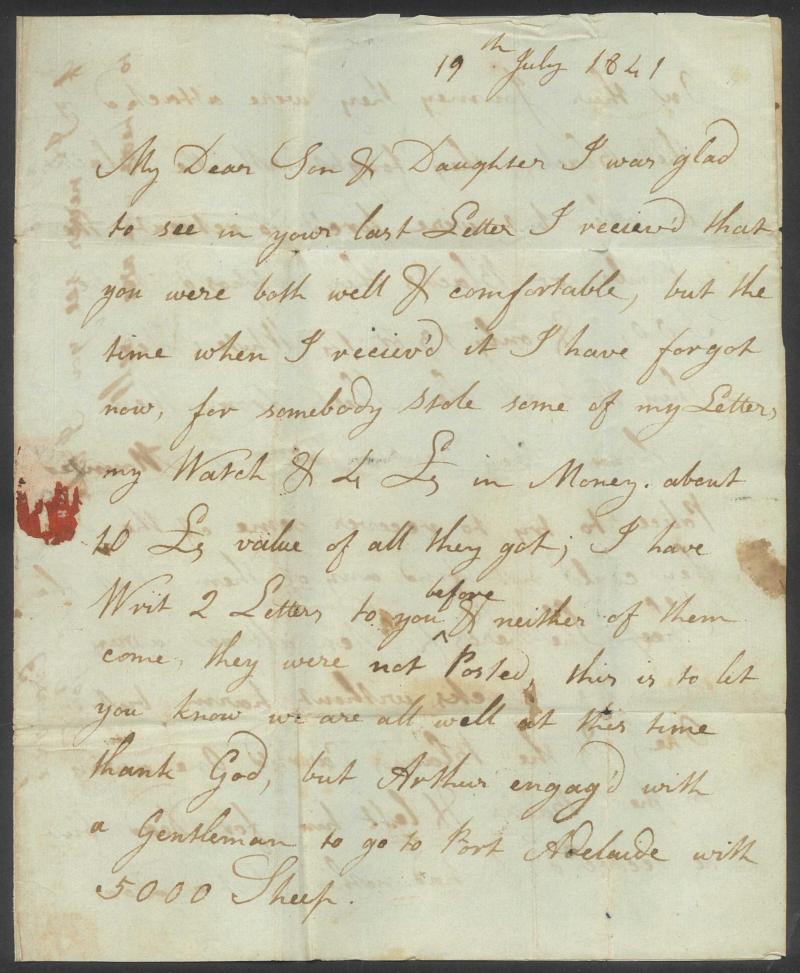 19th July 1841
My Dear Son & Daughter I was glad
to see in your last Letter I reciev'd that
you were both well & comfortable, but the
time when I reciev'd it I have forgot
now, for somebody stole some of my Letters
my Watch & 4 £s in Money. about
10 £s value of all they got; I have
Writ 2 Letters to you before & neither of them
come, they were not Posted, this is to let
you know we are all well at this time
thank God, but Arthur engag'd with
a Gentleman to go to Port Adelaide with
5000 Sheep.